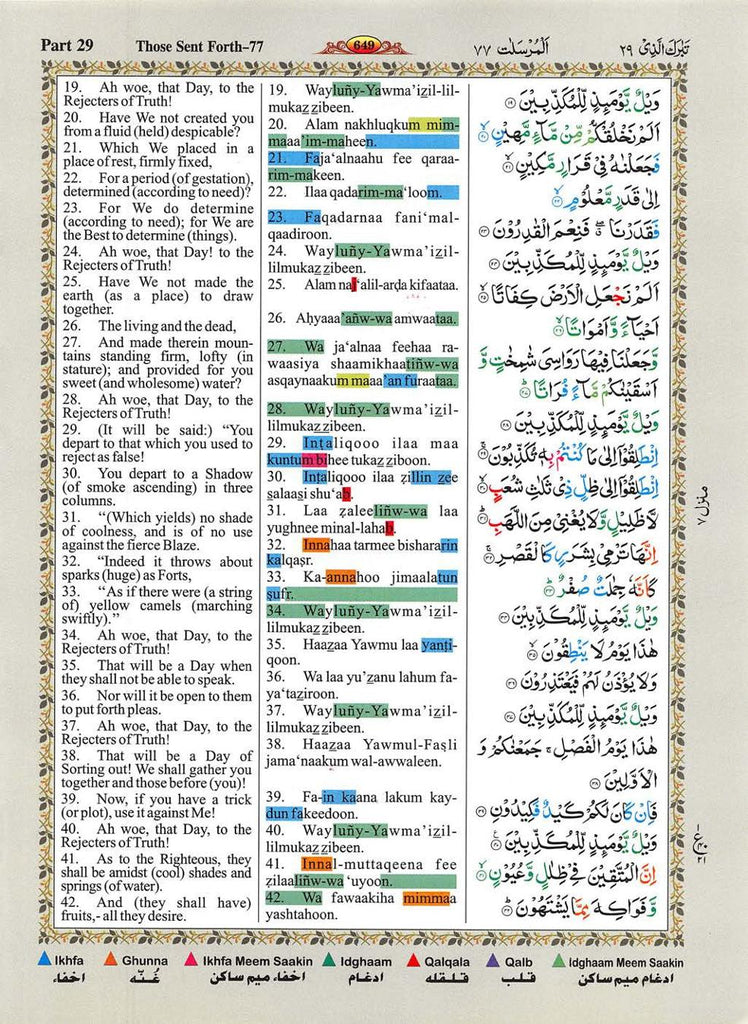 Part 29
Those Sent Forth–77
649
اَلْمُرْسَلٰت ٧٧
تَبٰرَكَ الَّذِىْ ٢٩
19. Ah woe, that Day, to the
Rejecters of Truth!
20. Have We not created you
from a fluid (held) despicable?
21. Which We placed in a
place of rest, firmly fixed,
22. For a period (of gestation),
determined (according to need)?
23. For We do determine
(according to need); for We are
the Best to determine (things).
24. Ah woe, that Day! to the
Rejecters of Truth!
25. Have We not made the
earth (as a place) to draw
together.
26. The living and the dead,
27. And made therein moun-
tains standing firm, lofty (in
stature); and provided for you
sweet (and wholesome) water?
28. Ah woe, that Day, to the
Rejecters of Truth!
29. (It will be said:) “You
depart to that which you used to
reject as false!
30. You depart to a Shadow
(of smoke ascending) in three
columns.
31. “(Which yields) no shade
of coolness, and is of no use
against the fierce Blaze.
32. “Indeed it throws about
sparks (huge) as Forts,
33. “As if there were (a string
of) yellow camels (marching
swiftly).”
34. Ah woe, that Day, to the
Rejecters of Truth!
35. That will be a Day when
they shall not be able to speak.
36. Nor will it be open to them
to put forth pleas.
37. Ah woe, that Day, to the
Rejecters of Truth!
38. That will be a Day of
Sorting out! We shall gather you
together and those before (you)!
39. Now, if you have a trick
(or plot), use it against Me!
40. Ah woe, that Day, to the
Rejecters of Truth!
41. As to the Righteous, they
shall be amidst (cool) shades and
springs (of water).
42. And (they shall have)
fruits,- all they desire.
19. Wayluñy-Yawma’izil-lil-
mukazzibeen.
20. Alam nakhluqkum mim-
maaa’im-maheen.
21. Faja‘alnaahu fee qaraa-
rim-makeen.
22. Ilaa qadarim-ma‘loom.
23. Faqadarnaa fani‘mal-
qaadiroon.
24. Wayluñy-Yawma’izil-
lilmukazzibeen.
25. Alam naj‘alil-arḍa kifaataa.
26. Aḥyaaa’añw-wa amwaataa.
27. Wa ja‘alnaa feehaa ra-
waasiya shaamikhaatiñw-wa
asqaynaakum maaa’an furaataa.
28. Wayluñy-Yawma’izil-
lilmukazzibeen.
29. Inṭaliqooo ilaa maa
kuntum bihee tukazziboon.
30. Inṭaliqooo ilaa zillin zee
salaasi shu‘ab.
31. Laa zaleeliñw-wa laa
yughnee minal-lahab.
32. Innahaa tarmee bishararin
kalqaṣr.
33. Ka-annahoo jimaalatun
ṣufr.
34. Wayluñy-Yawma’izil-
lilmukazzibeen.
35. Haazaa Yawmu laa yanṭi-
qoon.
36. Wa laa yu’zanu lahum fa-
ya‘taziroon.
37. Wayluñy-Yawma’izil-
lilmukazzibeen.
38. Haazaa Yawmul-Faṣli
jama‘naakum wal-awwaleen.
39. Fa-in kaana lakum kay-
dun fakeedoon.
40. Wayluñy-Yawma’izil-
lilmukazzibeen.
41. Innal-muttaqeena fee
zilaaliñw-wa ‘uyoon.
42. Wa fawaakiha mimmaa
yashtahoon.
وَيْلٌ يَّوْمَئِذٍ لِّلْمُكَذِّبِيْنَ ١٩
اَلَمْ نَخْلُقْكُّمْ مِّنْ مَّآءٍ مَّهِيْنٍ ٢٠
فَجَعَلْنٰهُ فِىْ قَرَارٍ مَّكِيْنٍ ٢١
اِلٰى قَدَرٍ مَّعْلُوْمٍ ٢٢
فَقَدَرْنَا ۖ فَنِعْمَ الْقٰدِرُوْنَ ٢٣
وَيْلٌ يَّوْمَئِذٍ لِّلْمُكَذِّبِيْنَ ٢٤
اَلَمْ نَجْعَلِ الْاَرْضَ كِفَاتًا ٢٥
اَحْيَآءً وَّ اَمْوَاتًا ٢٦
وَّجَعَلْنَا فِيْهَا رَوَاسِىَ شٰمِخٰتٍ وَّ
اَسْقَيْنٰكُمْ مَّآءً فُرَاتًا ٢٧
وَيْلٌ يَّوْمَئِذٍ لِّلْمُكَذِّبِيْنَ ٢٨
اِنْطَلِقُوْٓا اِلٰى مَا كُنْتُمْ بِهٖ تُكَذِّبُوْنَ ٢٩
اِنْطَلِقُوْٓا اِلٰى ظِلٍّ ذِىْ ثَلٰثِ شُعَبٍ ٣٠
لَّا ظَلِيْلٍ وَّلَا يُغْنِىْ مِنَ اللَّهَبِ ٣١
اِنَّهَا تَرْمِىْ بِشَرَرٍ كَالْقَصْرِ ٣٢
كَاَنَّهٗ جِمٰلَتٌ صُفْرٌ ٣٣
وَيْلٌ يَّوْمَئِذٍ لِّلْمُكَذِّبِيْنَ ٣٤
هٰذَا يَوْمُ لَا يَنْطِقُوْنَ ٣٥
وَلَا يُؤْذَنُ لَهُمْ فَيَعْتَذِرُوْنَ ٣٦
وَيْلٌ يَّوْمَئِذٍ لِّلْمُكَذِّبِيْنَ ٣٧
هٰذَا يَوْمُ الْفَصْلِ ۚ جَمَعْنٰكُمْ وَ
الْاَوَّلِيْنَ ٣٨
فَاِنْ كَانَ لَكُمْ كَيْدٌ فَكِيْدُوْنِ ٣٩
وَيْلٌ يَّوْمَئِذٍ لِّلْمُكَذِّبِيْنَ ٤٠
اِنَّ الْمُتَّقِيْنَ فِىْ ظِلٰلٍ وَّعُيُوْنٍ ٤١
وَّفَوَاكِهَ مِمَّا يَشْتَهُوْنَ ٤٢
منزل ٧
Ikhfa Ghunna Ikhfa Meem Saakin Idghaam Qalqala Qalb Idghaam Meem Saakin
اخفاء غُنّه اخفاء میم ساکن ادغام قلقله قلب ادغام میم ساکن